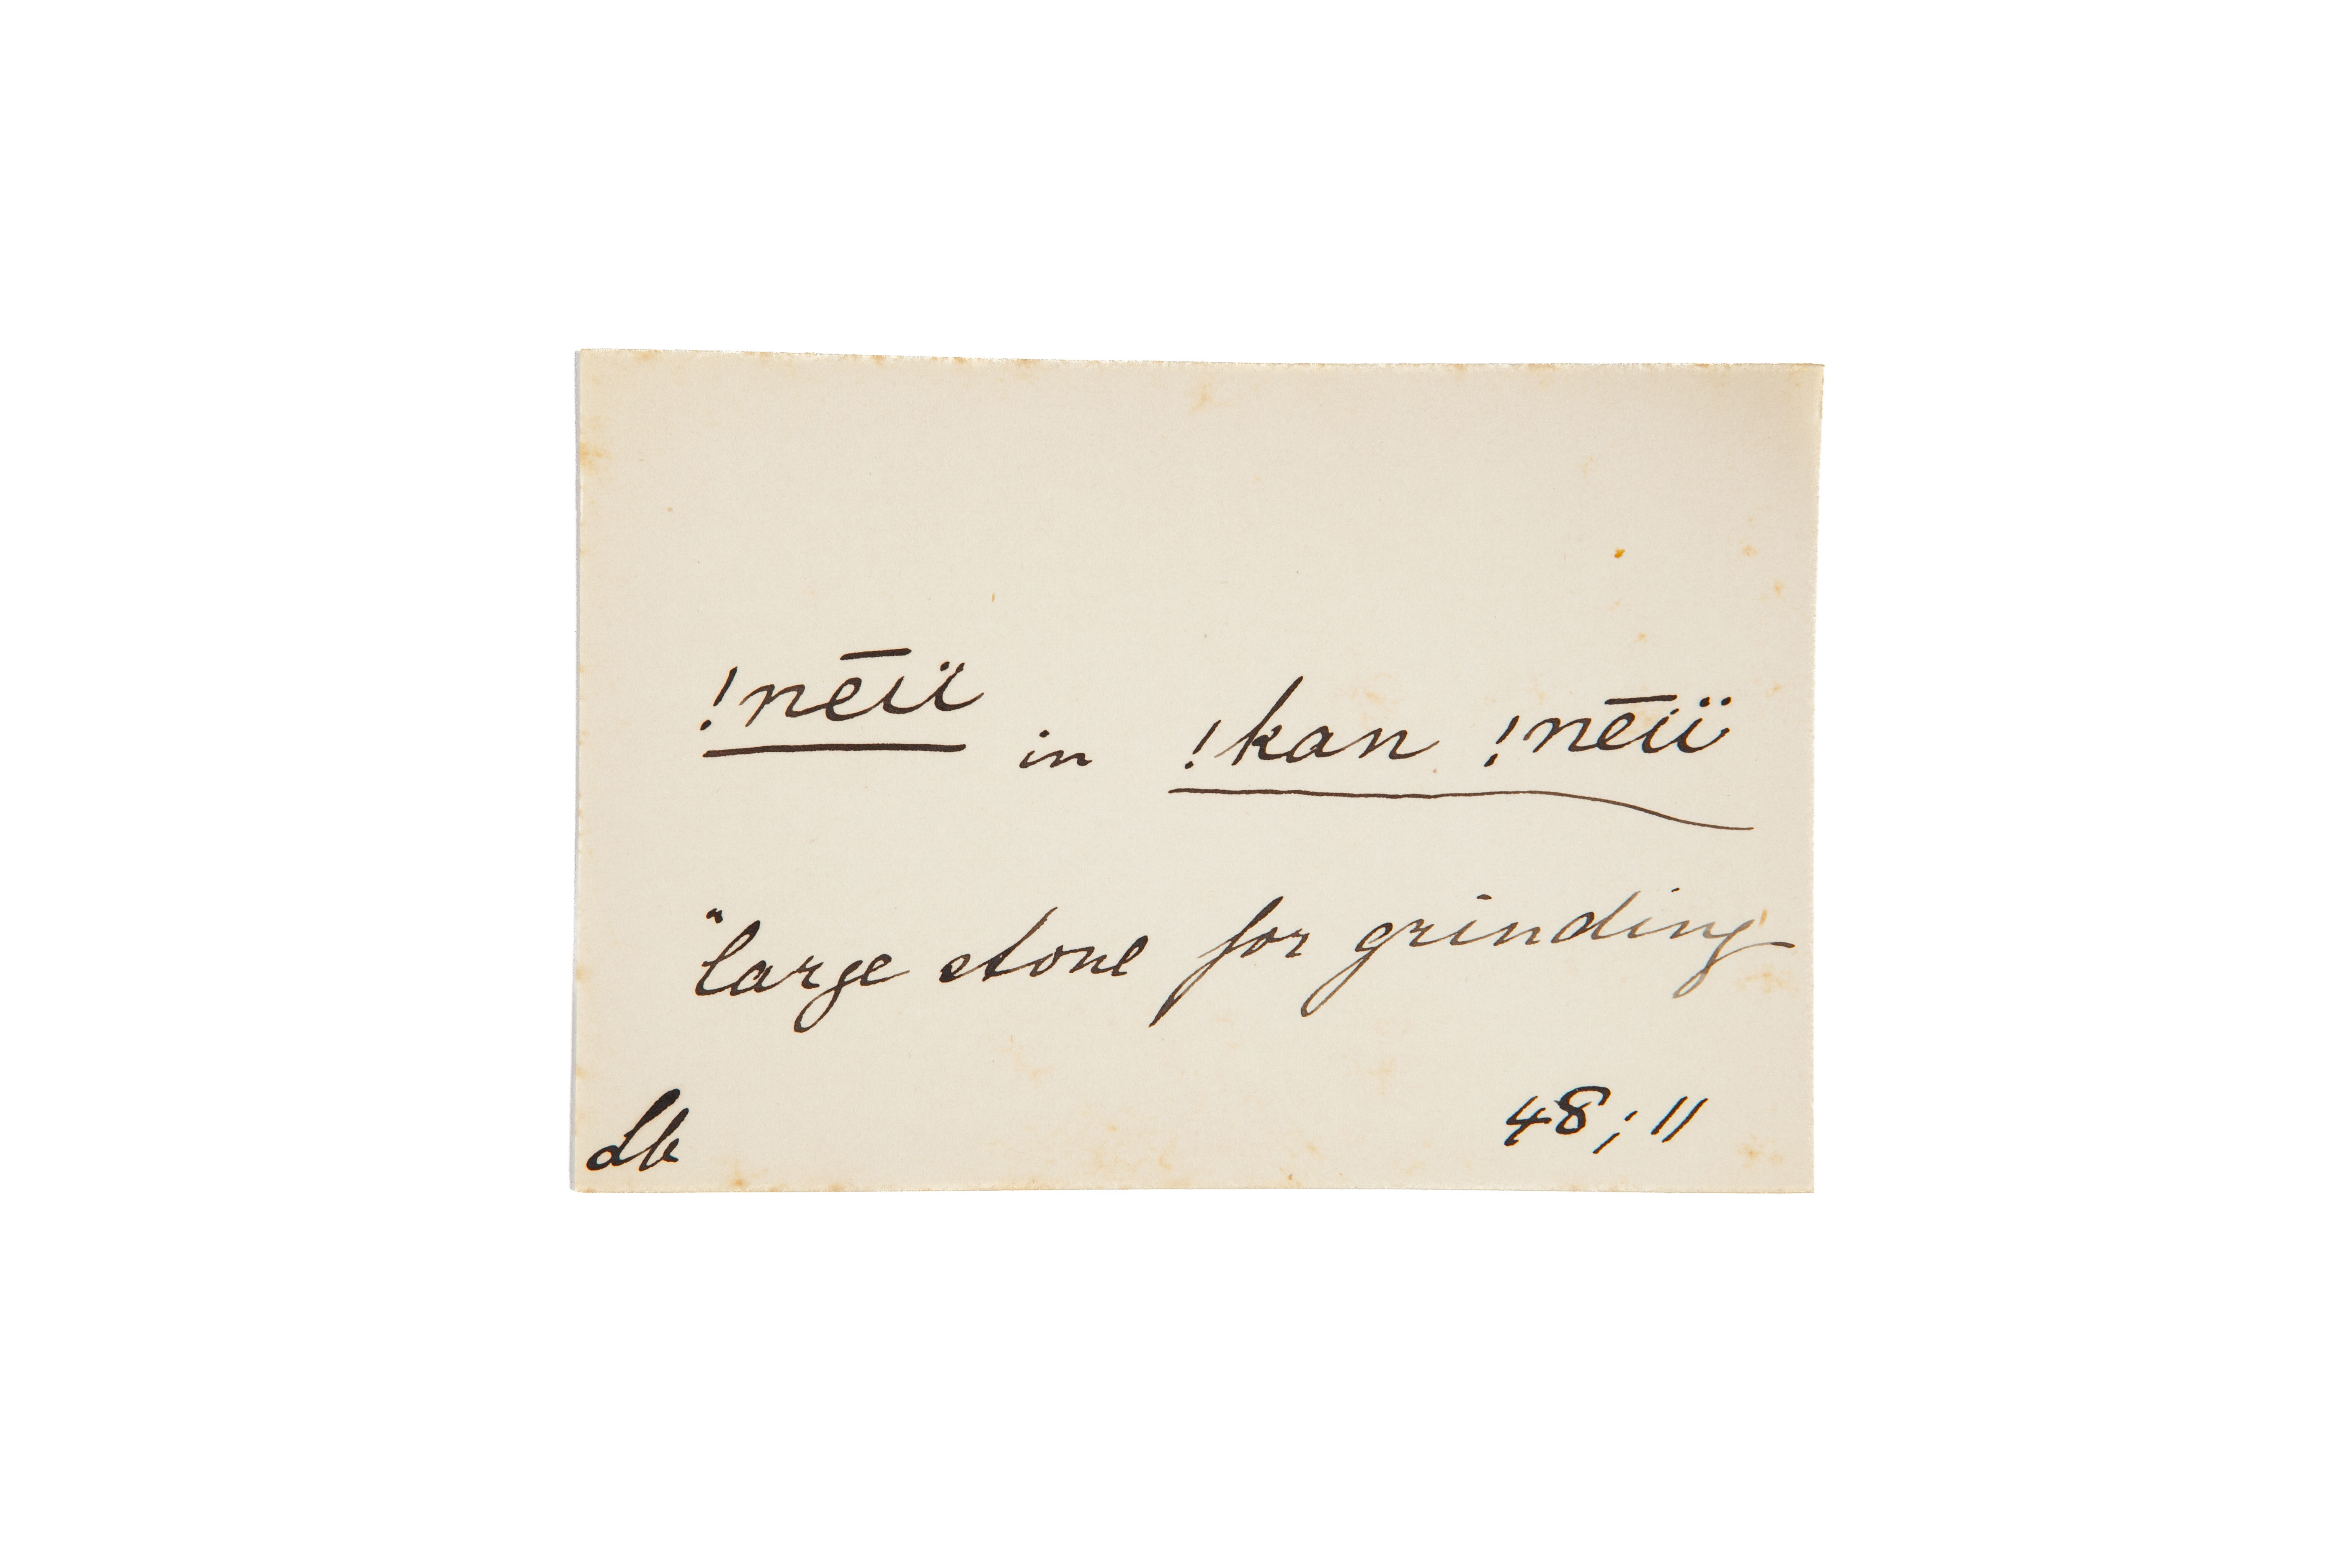 !nēïï in !kan !nēïï
"large stone for grinding
Lb 48; 11